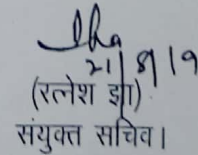 21/8/19
(रत्नेश झा)
संयुक्त सचिव।